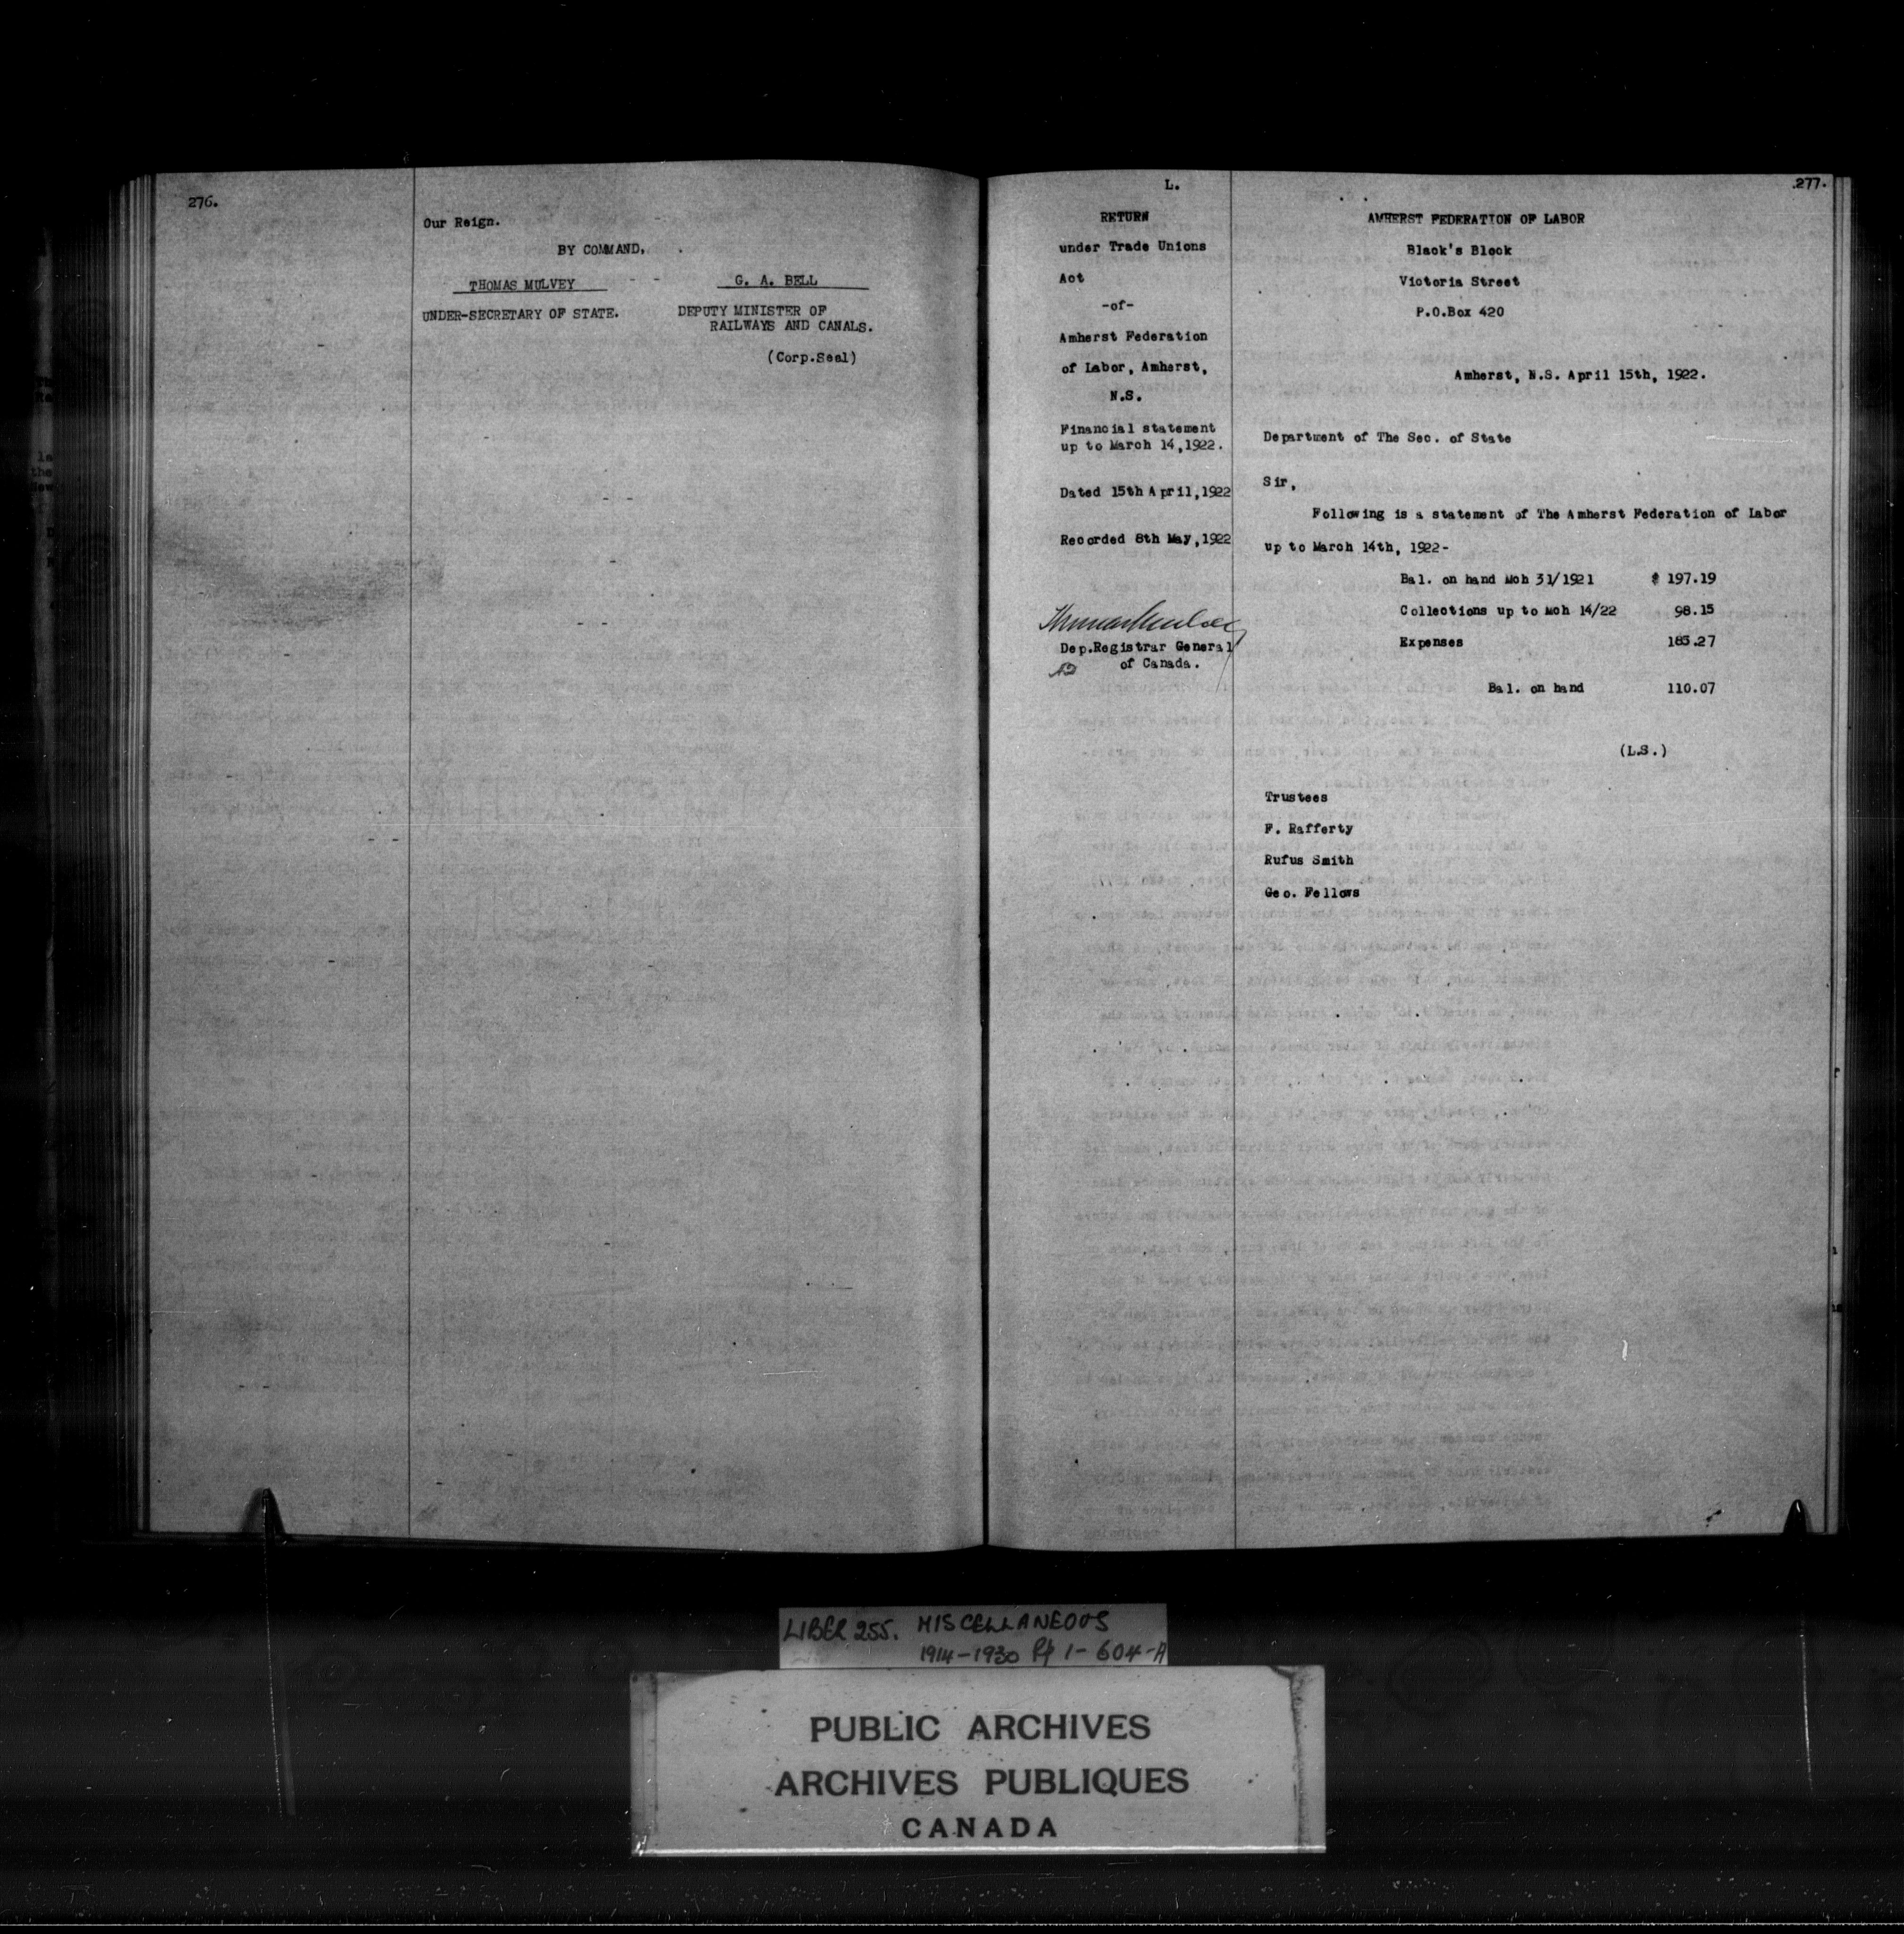 276.
Our Reign.
BY COMMAND,
THOMAS MULVEY
UNDER-SECRETARY OF STATE.
G. A. BELL
DEPUTY MINISTER OF
RAILWAYS AND CANALS.
(Corp.Seal)
L.
277.
RETURN
under Trade Unions
Act
-of-
Amherst Federation
of Labor, Amherst,
N.S.
Financial statement
up to March 14,1922.
Dated 15th April,1922
Recorded 8th May,1922
Thomas Mulvey
Dep.Registrar General
of Canada.
AMHERST FEDERATION OF LABOR
Black's Block
Victoria Street
P.O.Box 420
Amherst, N.S. April 15th, 1922.
Department of The Sec. of State
Sir,
Following is a statement of The Amherst Federation of Labor
up to March 14th, 1922-
Bal. on hand Mch 31/1921 $ 197.19
Collections up to Mch 14/22 98.15
Expenses 185.27
Bal. on hand 110.07
(L.S.)
Trustees
F. Rafferty
Rufus Smith
Geo. Fellows
LIBER 255. MISCELLANEOUS
1914-1930 Pp 1-604-A
PUBLIC ARCHIVES
ARCHIVES PUBLIQUES
CANADA